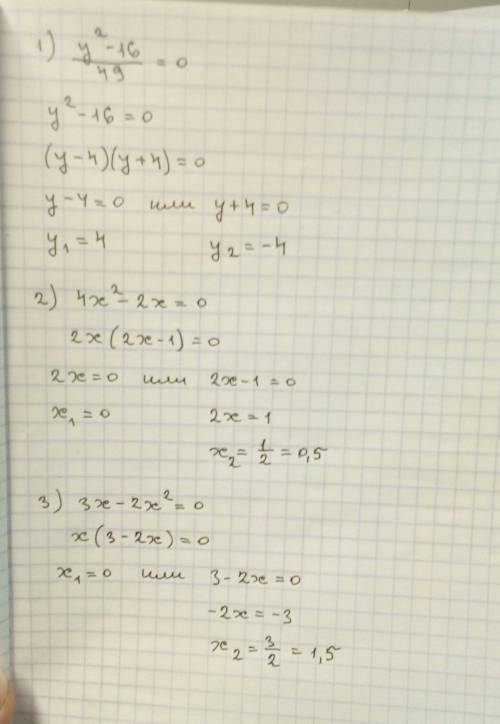 1) (y² - 16)/49 = 0
y² - 16 = 0
(y - 4)(y + 4) = 0
y - 4 = 0 или y + 4 = 0
y₁ = 4 y₂ = -4
2) 4x² - 2x = 0
2x(2x - 1) = 0
2x = 0 или 2x - 1 = 0
x₁ = 0 2x = 1
x₂ = 1/2 = 0,5
3) 3x - 2x² = 0
x(3 - 2x) = 0
x₁ = 0 или 3 - 2x = 0
-2x = -3
x₂ = 3/2 = 1,5